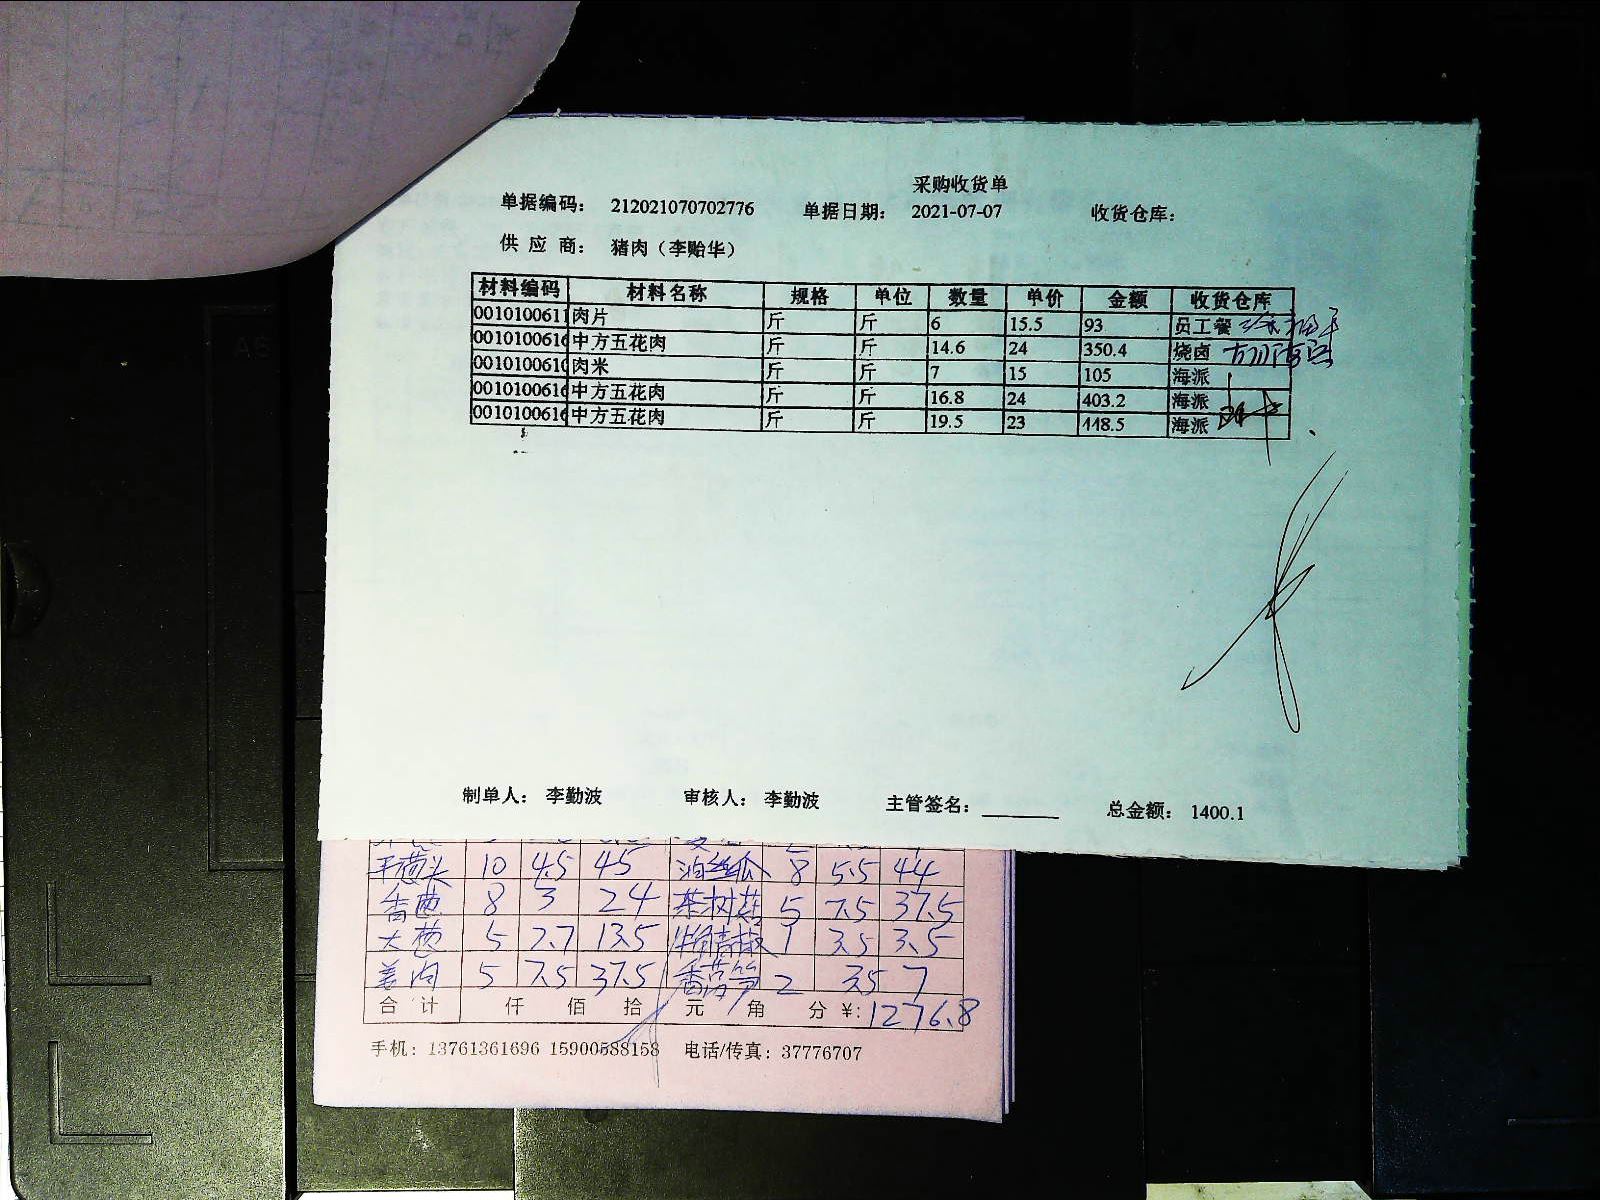 采购收货单
单据编码： 212021070702776 单据日期： 2021-07-07 收货仓库：
供 应 商： 猪肉（李贻华）
材料编码 材料名称 规格 单位 数量 单价 金额 收货仓库
0010100611 肉片 斤 斤 6 15.5 93 员工餐
001010061 中方五花肉 斤 斤 14.6 24 350.4 烧卤
001010061 肉米 斤 斤 7 15 105 海派
001010061 中方五花肉 斤 斤 16.8 24 403.2 海派
001010061 中方五花肉 斤 斤 19.5 23 448.5 海派
制单人： 李勤波 审核人： 李勤波 主管签名： 总金额： 1400.1
干葱头 10 4.5 45 丝瓜 8 5.5 44
香葱 8 3 24 茶树菇 5 7.5 37.5
大葱 5 2.7 13.5 青椒 1 3.5 3.5
姜肉 5 7.5 37.5 香莴笋 2 3.5 7
合 计 仟 佰 拾 元 角 分 ¥: 1276.8
手机：13761361696 15900588158 电话/传真：37776707